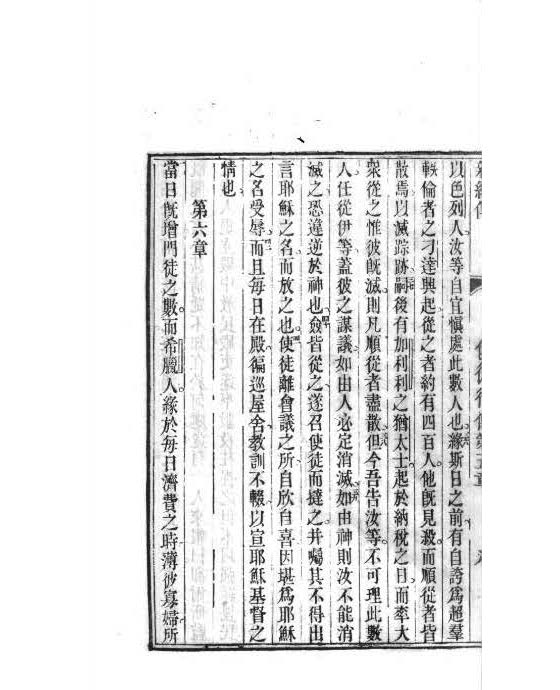 使徒行傳第五章
以色列人汝等自宜愼處此數人也緣斯日之前有自誇爲超羣
軼倫者之刁達興起從之者約有四百人他旣見殺而順從者皆
散焉以滅踪跡嗣後有加利利之猶太士起於納稅之日而率大
衆從之惟彼旣滅則凡順從者盡散但今吾告汝等不可理此數
人任從伊等蓋彼之謀議如由人必定消滅如由神則汝不能消
滅之恐違逆於神也僉皆從之遂召使徒而撻之並囑其不得出
言耶穌之名而放之也使徒離會議之所自欣自喜因堪爲耶穌
之名受辱而且每日在殿徧巡屋舍教訓不輟以宣耶穌基督之
情也
第六章
當日旣增門徒之數而希臘人緣於每日濟費之時薄彼寡婦所